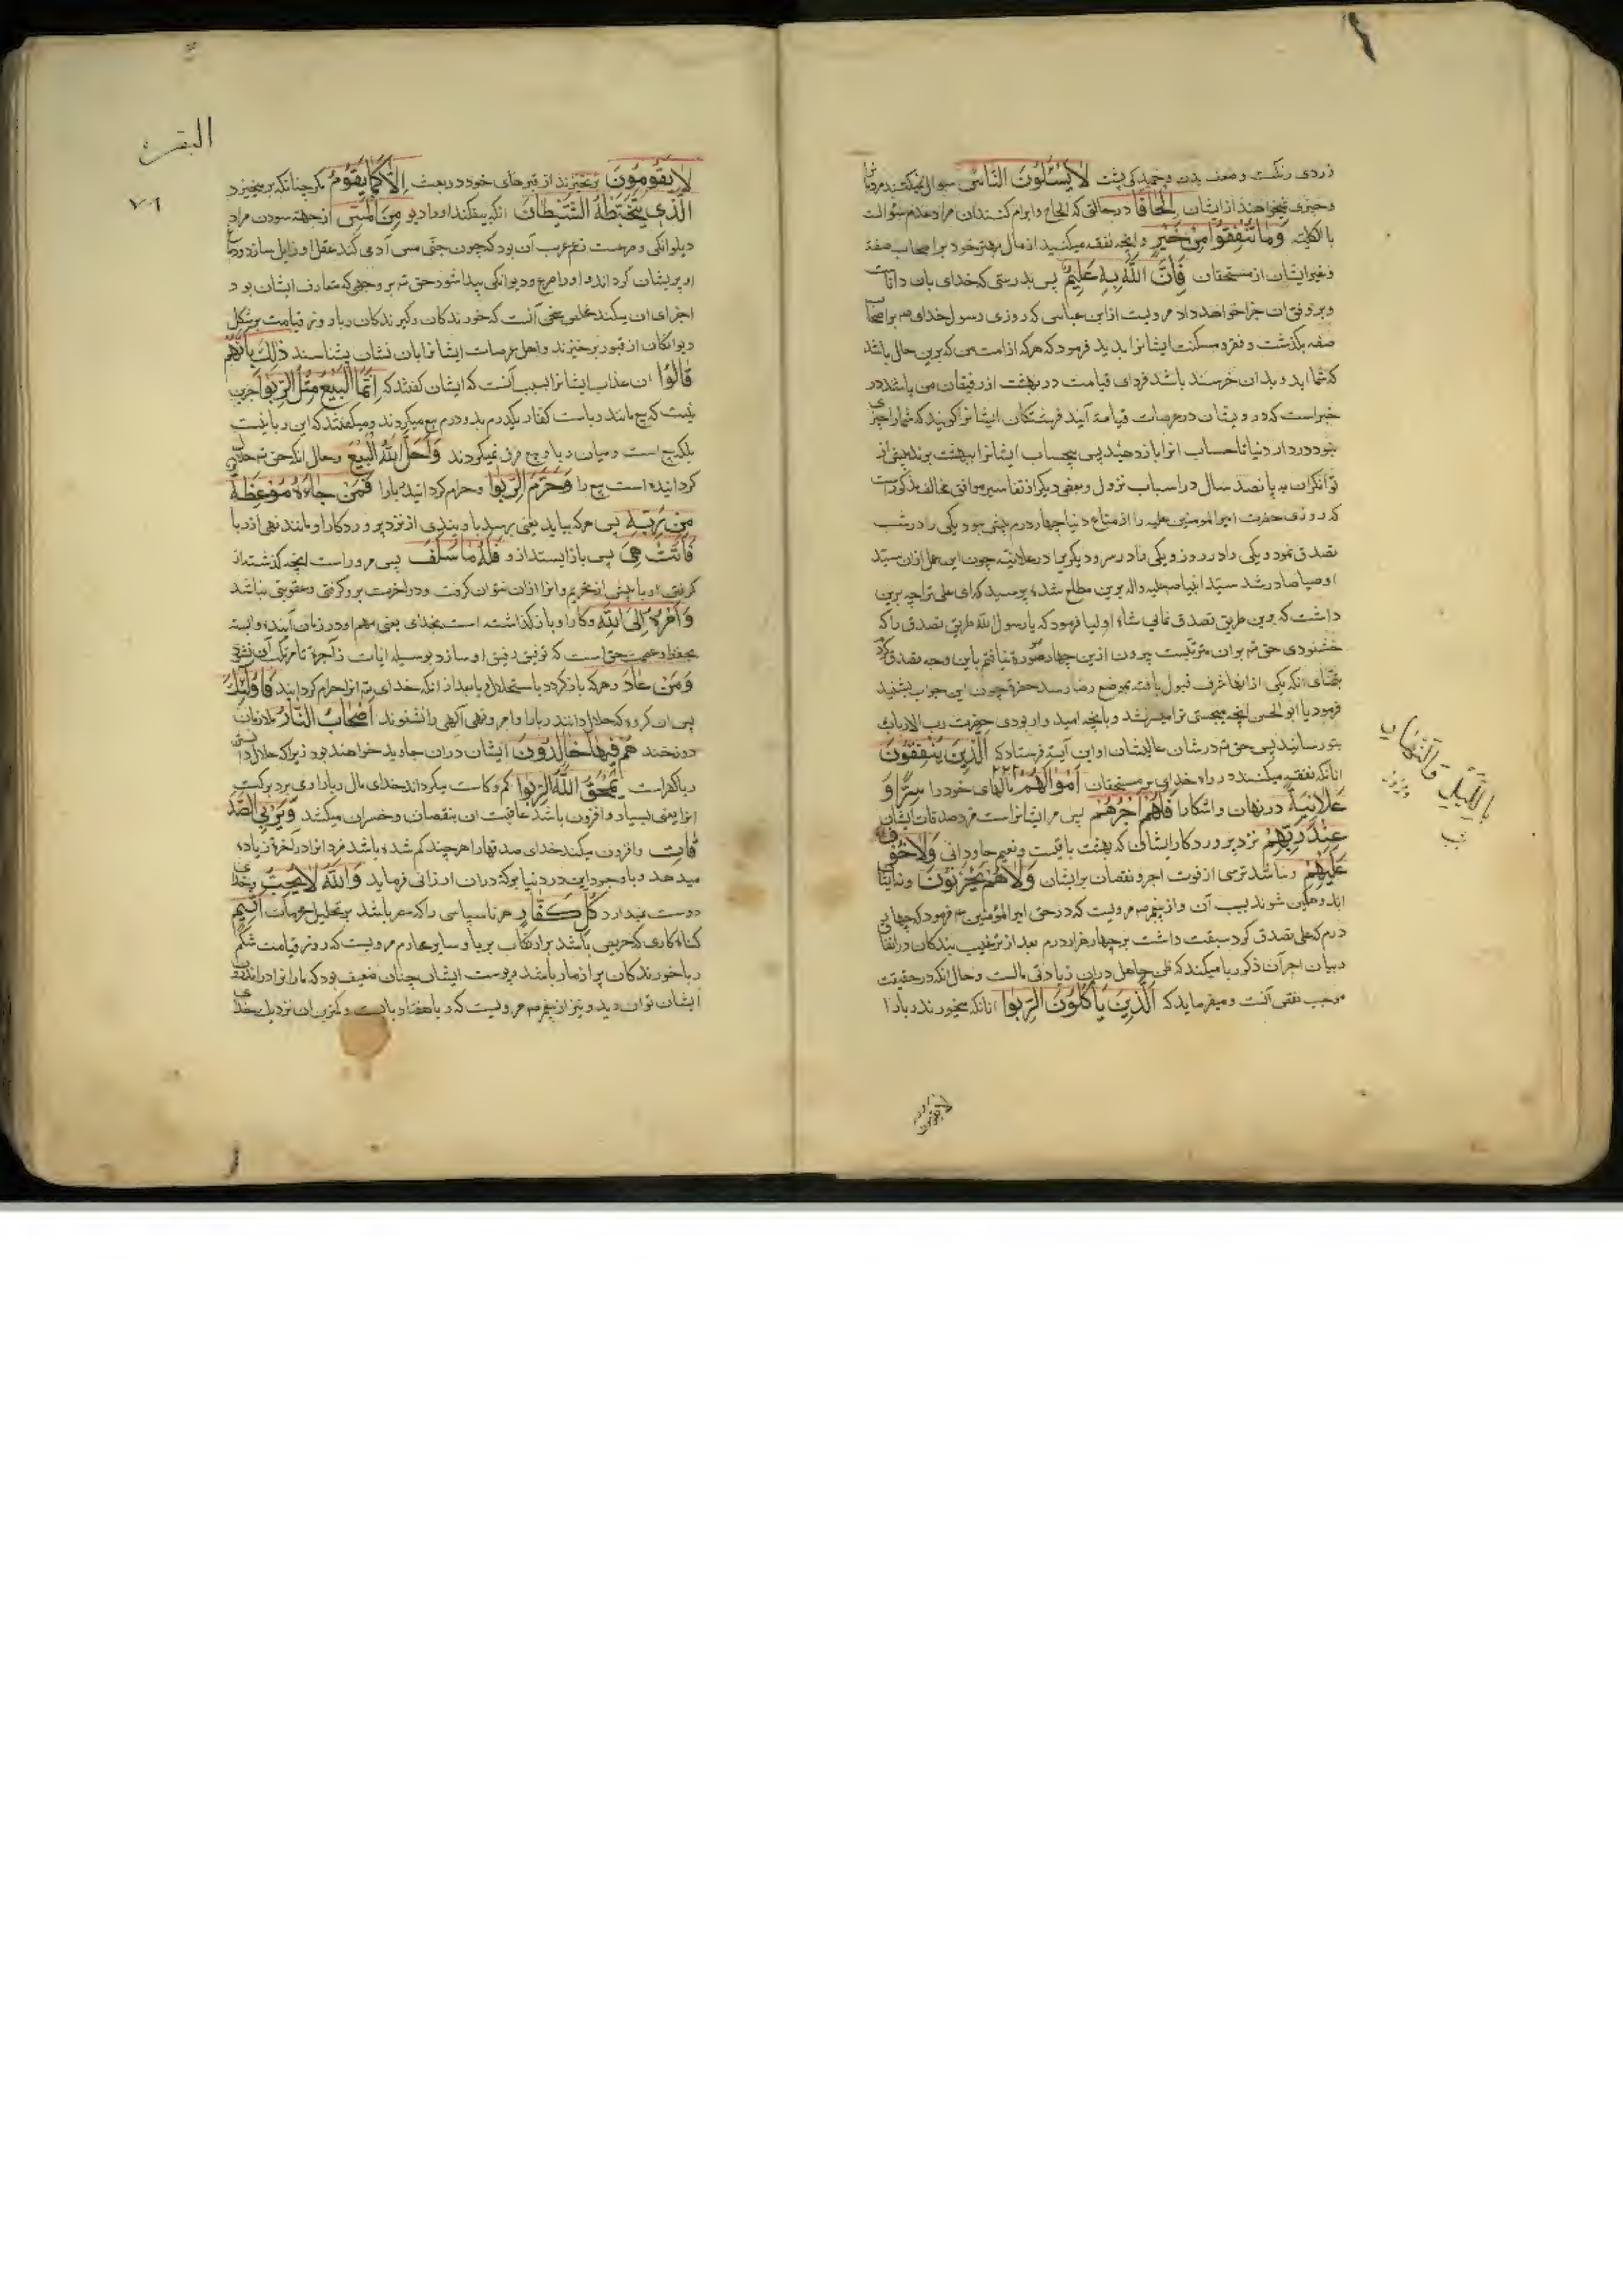 زردی رنگ و ضعف بدن و خمیدکی پشت لَا يَسْئَلُونَ النَّاسَ سوال نمیکنند مردمان
و چیزی نمیخواهند از ایشان اِلْحَافًا درحالتی که الحاح و ابرام کنندکان مراد عدم سؤالست
بالکلیه وَمَا تُنْفِقُوا مِنْ خَيْرٍ و انچه نفقه میکنید از مال بهتر خود بر اصحاب صفه
و غیر ایشان از مستحقان فَاِنَّ اللّٰهَ بِهِ عَلِيمٌ پس بدرستی که خدای بان داناست
و بر وفق ان جزا خواهد داد مرویست از ابن عباس که روزی رسول خدای ص بر اصحاب
صفه بکذشت و فقر و مسکنت ایشانرا بدید فرمود که هرکه از امت من که برین حال باشد
که شمااید و بدان خرسند باشد فردای قیامت در بهشت از رفیقان من باشد در
خبر است که درویشان در عرصات قیامة آیند فرشتکان ایشانرا کویند که شما را چیزی
نبود در دار دنیا تا حساب انرا باز دهید پس بیحساب ایشانرا ببهشت برند پیش از
توانکران به پانصد سال در اسباب نزول و بعضی دیکر از تفاسیر موافق و مخالف مذکور است
که روزی حضرت امیرالمومنین علیه را از متاع دنیا چهار درم بیش نبود یکی را در شب
تصدق نمود و یکی را در روز و یکی را در سر و دیکریرا در علانیه چون این عمل ازان سید
اوصیا صادر شد سید انبیا ص علیه واله برین مطلع شده پرسید که ای علی ترا چه برین
داشت که برین طریق تصدق نمائی شاه اولیا فرمود که یا رسول الله طریق تصدق را که
خشنودی حق تم بران مترتبست بیرون ازین چهار صورة نیافتم باین وجه تصدق کردم
بتمنای انکه یکی ازانها شرف قبول یافته بموضع رضا رسد حضرة چون این جواب بشنید
فرمود یا ابوالحسن انچه میجستی ترا میسر شد و بانچه امیدوار بودی حضرت رب الارباب
بتو رسانید پس حق تم در شان عالیشان او این آیة فرستاد که اَلَّذِينَ يُنْفِقُونَ
انانکه نفقه میکنند در راه خدای بر مستحقان اَمْوَالَهُمْ مالهای خود را سِرًّا وَ
عَلَانِيَةً در نهان و اشکارا فَلَهُمْ اَجْرُهُمْ پس مر ایشانراست مزد صدقات ایشان
عِنْدَ رَبِّهِمْ نزد پروردکار ایشان که بهشت باقیست و نعیم جاودانی وَلَا خَوْفٌ
عَلَيْهِمْ و نباشد ترسی از فوت اجر و نقصان بر ایشان وَلَا هُمْ يَحْزَنُونَ و نه ایشان
اندوهکین شوند بسبب آن و از پیغمبر ص مرویست که در حق امیرالمؤمنین ع فرمود که چهار
درم که علی تصدق کرد سبقت داشت بر چهار هزار درم بعد از ترغیب بندکان در انفاق
و بیان اجر آن ذکر ربا میکند که ظن جاهل دران زیادتی مالست و حال انکه در حقیقت
موجب نقص آنست و میفرماید که اَلَّذِينَ يَأْكُلُونَ الرِّبٰوا انانکه میخورند ربا را
بِاللَّيْلِ وَالنَّهَارِ
شب
و روز
لا یقومون
البقره
٧٦
لَا يَقُومُونَ برنخیزند از قبرهای خود در بعث اِلَّا كَمَا يَقُومُ مکر چنانکه برمیخیزد
الَّذِي يَتَخَبَّطُهُ الشَّيْطَانُ انکه بیفکند او را دیو مِنَ الْمَسِّ از جهة سودن مراد
دیوانکی و صرعست زعم عرب آن بود که چون جنی مس آدمی کند عقل او زایل سازد و دماغ
او پریشان کرداند و او را صرع و دیوانکی پیدا شود حق تم بر وجهی که متعارف ایشان بود
اجرای ان میکند ملخص سخن آنست که خورندکان و کیرندکان ربا روز قیامت بر شکل
دیوانکان از قبور برخیزند و اهل عرصات ایشانرا بان نشان بشناسند ذٰلِكَ بِاَنَّهُمْ
قَالُوا ان عذاب ایشانرا بسبب آنست که ایشان کفتند که اِنَّمَا الْبَيْعُ مِثْلُ الرِّبٰوا جزین
نیست که بیع مانند رباست کفار یکدرم بدو درم بیع میکردند و میکفتند که این ربا نیست
بلکه بیع است و میان ربا و بیع فرق نمیکردند وَاَحَلَّ اللّٰهُ الْبَيْعَ و حال انکه حق تم حلال
کردانیده است بیع را وَحَرَّمَ الرِّبٰوا و حرام کردانیده ربا را فَمَنْ جَاءَهُ مَوْعِظَةٌ
مِنْ رَبِّهِ پس هرکه بیاید یعنی برسد باو پندی از نزد پروردکار او مانند نهی از ربا
فَانْتَهٰى پس باز ایستد ازو فَلَهُ مَا سَلَفَ پس مر وراست انچه کذشته از
کرفتن او پیش از تحریم و انرا ازان نتوان کرفت و در اخرت برو کرفتی و عقوبتی نباشد
وَاَمْرُهُ اِلَى اللّٰهِ و کار او باز کذاشته است بخدای یعنی مهم او در زمان آینده وابسته
بحفظ و عصمت حق است که توفیق رفیق او سازد
وَمَنْ عَادَ و هرکه باز کردد باستحلال ربا بعد از انکه خدای تم انرا حرام کردانید فَاُولٰئِكَ
پس ان کروه که حلال دانند ربا را و امر و نهی آلهی را نشنوند اَصْحَابُ النَّارِ ملازمان
دوزخند هُمْ فِيهَا خَالِدُونَ ایشان دران جاوید خواهند بود زیرا که حلال داشتن
ربا کفر است يَمْحَقُ اللّٰهُ الرِّبٰوا کم و کاست میکرداند خدای مال ربا را و می برد برکت
انرا یعنی بسیار و افزون باشد عاقبت ان بنقصان و خسران میکشد وَيُرْبِي الصَّدَ
قَاتِ و افزون میکند خدای صدقها را هرچند کم شده باشد مزد انرا در آخرة زیاده
میدهد و با وجود این در دنیا برکة دران ارزانی فرماید وَاللّٰهُ لَا يُحِبُّ و خدای
دوست ندارد كُلَّ كَفَّارٍ هر ناسپاسی را که مصر باشد بر تحلیل محرمات اَثِيمٍ
کناه کاری که حریص باشد بر ارتکاب ربا و سایر محارم مرویست که روز قیامت شکم
ربا خورندکان پر از مار باشد و پوست ایشان چنان ضعیف بود که مارانرا در اندرون
ایشان توان دید و نیز از پیغمبر ص مرویست که ربا هفتاد بابست و کمترین ان نزدیک خدای